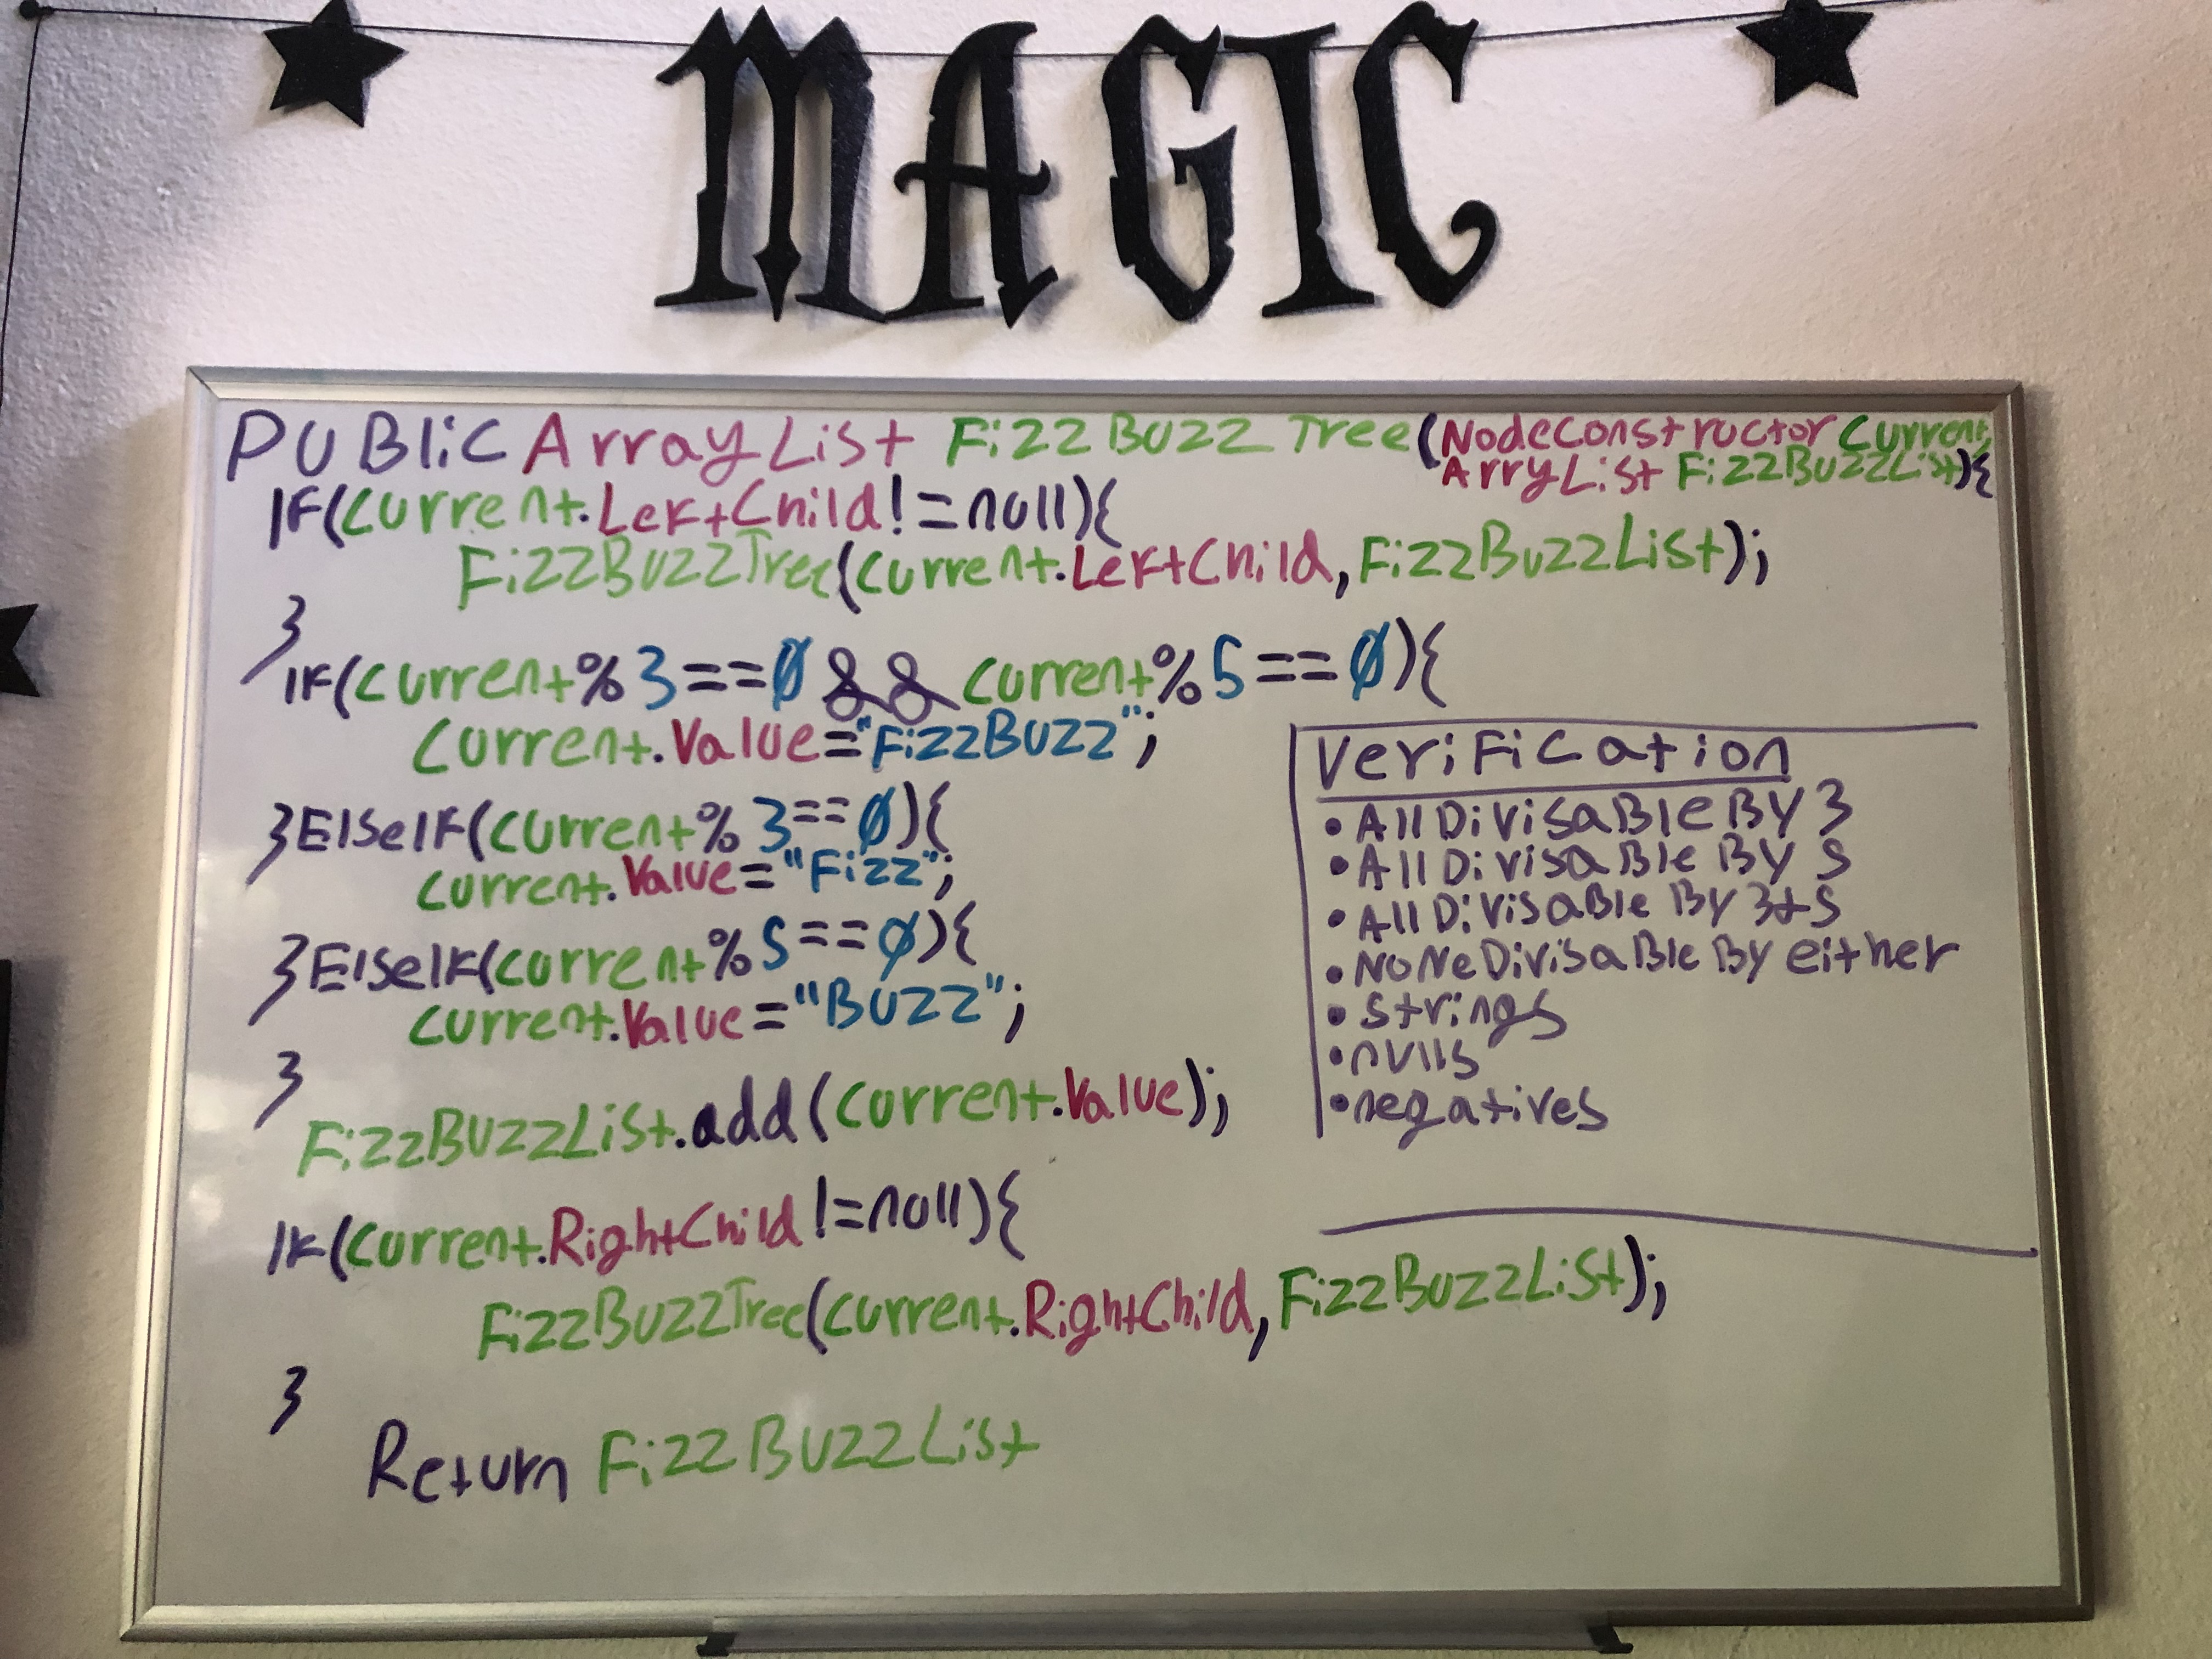 MAGIC
PUBliC ArrayList FizzBuzz Tree(NodeConstructor Current,
ArryList FizzBuzzList){
IF(Current.LeftChild!=null){
FizzBuzzTree(Current.LeftChild,FizzBuzzList);
}
IF(Current%3==0&&Current%5==0){
Current.Value="FizzBuzz";
}ElseIF(Current%3==0){
Current.Value="Fizz";
}ElseIF(Current%5==0){
Current.Value="Buzz";
}
FizzBuzzList.add(Current.Value);
IF(Current.RightChild!=null){
FizzBuzzTree(Current.RightChild,FizzBuzzList);
}
Return FizzBuzzList
Verification
• All Divisable By 3
• All Divisable By 5
• All Divisable By 3+5
• None Divisable By either
• strings
• nulls
• negatives